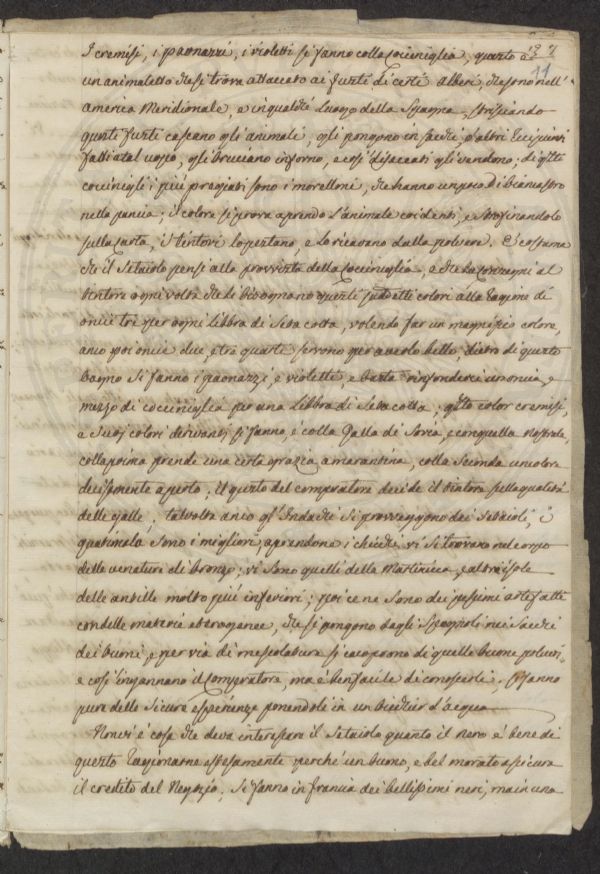 I cremisi, i paonazzi, i violetti si fanno colla Cocciniglia, questo è
un animaletto che si trova attaccato ai fusti di certi alberi, che sono nell'
America Meridionale, e in qualche luogo della Spagna, strisciando
questi fusti cascano gli animali, gli pongono in sacchi, o altri recipienti
fatti a tal uopo, gli bruciano in forno, e così disseccati gli vendono; di q.te
coccinigli i più pregiati sono i morelloni, che hanno un poco di biancastro
nella pancia; il colore si prova aprendo l'animale coi denti, e strofinandolo
sulla carta, i tintori lo pestano, e lo ricavano dalla polvere. È costume
che il Setaiolo pensi alla provvista della Cocciniglia, e che la consegni al
tintore ogni volta che li bisognano questi suddetti colori alla ragione di
oncie tre per ogni libbra di Seta cotta, volendo far un magnifico colore,
anco poi oncie due, e tre quarti servono per averlo bello, dietro di questo
bagno si fanno i paonazzi, e violetti, e basta rinfonderci un'oncia, e
mezzo di cocciniglia per una Libbra di Seta cotta; q.sto color cremisi,
e suoi colori derivanti si fanno, e colla Galla di Soria, e con quella Nostrale,
colla prima prende una certa grazia amarantina, colla seconda un colore
decisamente aperto, il gusto del compratore decide il tintore sulla qualità
delle galle, talvolta anco gl'Indachi si provveggono dai Setaioli, i
guatimala sono i migliori, aprendone i chicchi vi si trovano nel corpo
delle venature di bronzo; vi sono quelli della Martinicca, e altre isole
delle antille molto più inferiori; poi ce ne sono dei pessimi artefatti
con delle materie eterogenee, che si pongono dagli Spagnoli nei sacchi
dei buoni, e per via di mescolature si cuoprono di quelle buone polveri,
e così ingannano il Compratore, ma è ben facile di conoscerli, si fanno
pure delle sicure esperienze ponendoli in un bicchier d'acqua
Non vi è cosa che deva interessare il Setaiolo quanto il nero è bene di
questo ragionarne espresamente perchè un buono, e bel morato assicura
il credito del Negozio, si fanno in francia dei bellissimi neri, ma in una